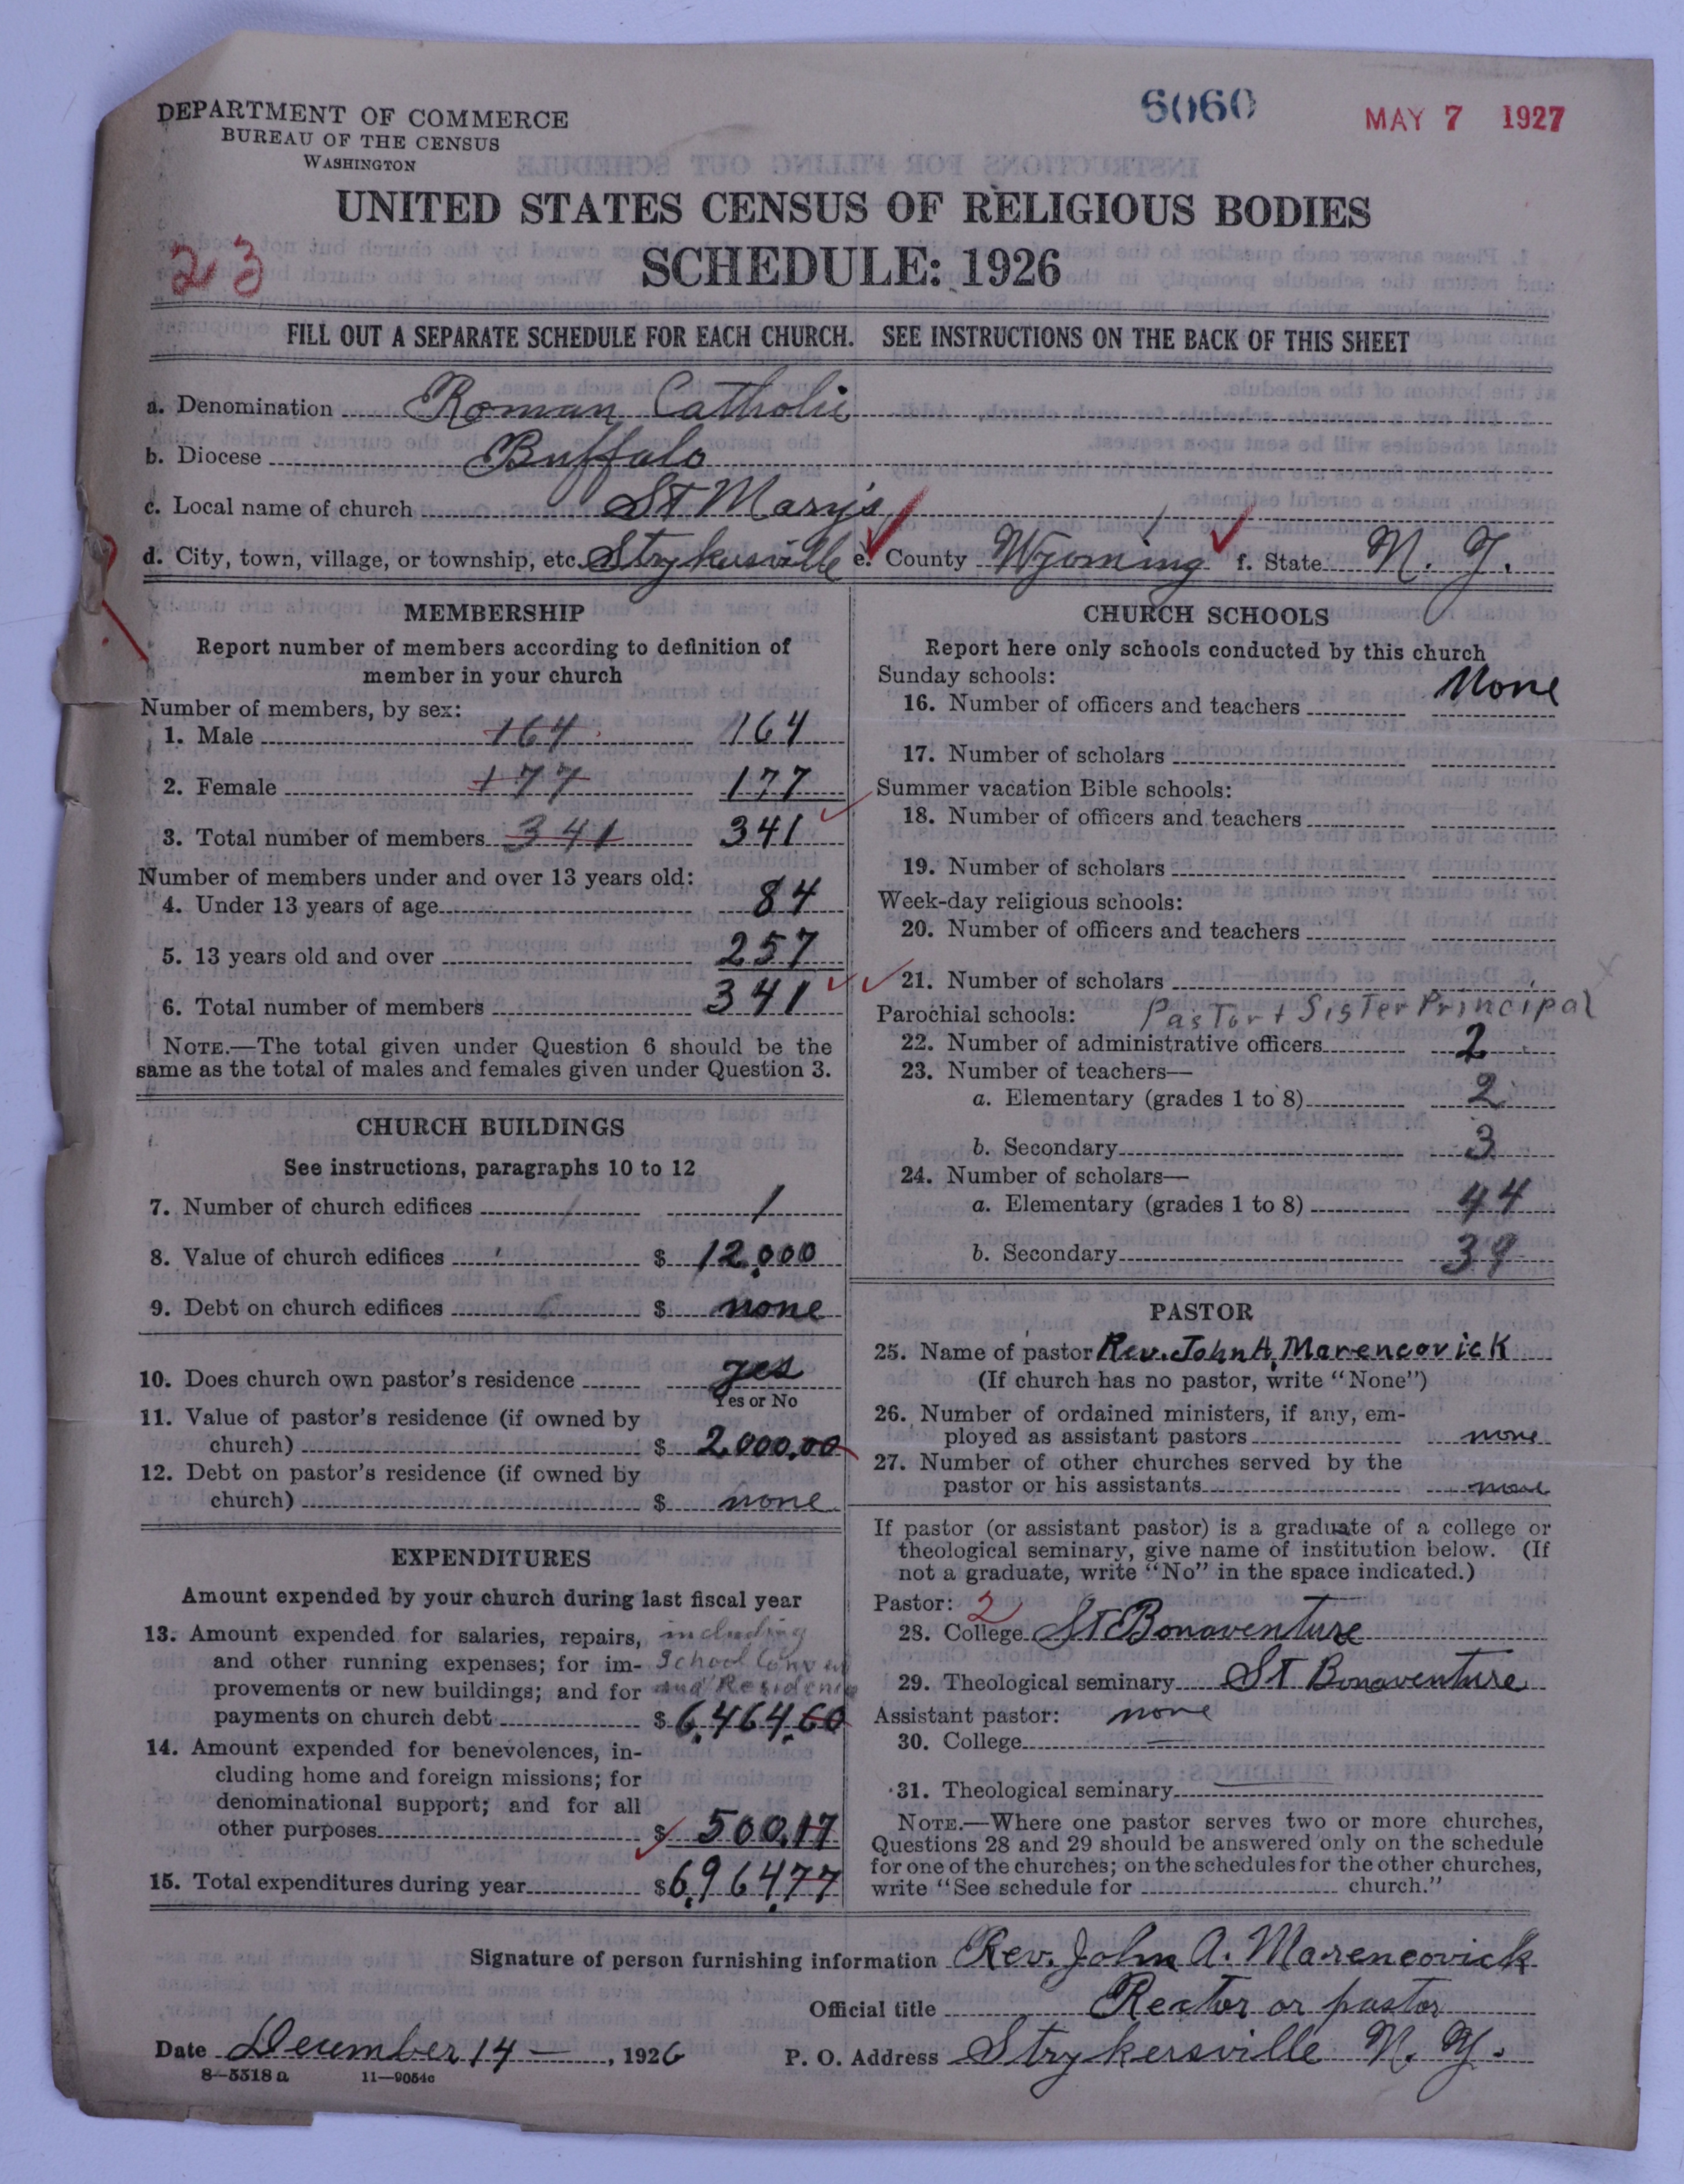 DEPARTMENT OF COMMERCE
BUREAU OF THE CENSUS
WASHINGTON
6060
MAY 7 1927
UNITED STATES CENSUS OF RELIGIOUS BODIES
SCHEDULE: 1926
23
FILL OUT A SEPARATE SCHEDULE FOR EACH CHURCH. SEE INSTRUCTIONS ON THE BACK OF THIS SHEET
a. Denomination Roman Catholic
b. Diocese Buffalo
c. Local name of church St Mary's
d. City, town, village, or township, etc. Strykersville e. County Wyoming f. State N. Y.
MEMBERSHIP
Report number of members according to definition of
member in your church
Number of members, by sex:
1. Male 164 164
2. Female 177 177
3. Total number of members 341 341
Number of members under and over 13 years old:
4. Under 13 years of age 84
5. 13 years old and over 257
6. Total number of members 341
NOTE.—The total given under Question 6 should be the
same as the total of males and females given under Question 3.
CHURCH BUILDINGS
See instructions, paragraphs 10 to 12
7. Number of church edifices 1
8. Value of church edifices $ 12,000
9. Debt on church edifices $ none
10. Does church own pastor's residence yes
Yes or No
11. Value of pastor's residence (if owned by
church) $ 2,000.00
12. Debt on pastor's residence (if owned by
church) $ none
EXPENDITURES
Amount expended by your church during last fiscal year
13. Amount expended for salaries, repairs, including
and other running expenses; for im- School Convent
provements or new buildings; and for and Residence
payments on church debt $ 6,464.60
14. Amount expended for benevolences, in-
cluding home and foreign missions; for
denominational support; and for all
other purposes $ 500.17
15. Total expenditures during year $ 6,964.77
CHURCH SCHOOLS
Report here only schools conducted by this church
Sunday schools:
16. Number of officers and teachers None
17. Number of scholars
Summer vacation Bible schools:
18. Number of officers and teachers
19. Number of scholars
Week-day religious schools:
20. Number of officers and teachers
21. Number of scholars
Parochial schools: Pastor + Sister Principal
22. Number of administrative officers 2
23. Number of teachers—
a. Elementary (grades 1 to 8) 2
b. Secondary 3
24. Number of scholars—
a. Elementary (grades 1 to 8) 44
b. Secondary 39
PASTOR
25. Name of pastor Rev. John A. Marencovick
(If church has no pastor, write "None")
26. Number of ordained ministers, if any, em-
ployed as assistant pastors none
27. Number of other churches served by the
pastor or his assistants none
If pastor (or assistant pastor) is a graduate of a college or
theological seminary, give name of institution below. (If
not a graduate, write "No" in the space indicated.)
Pastor: 2
28. College St Bonaventure
29. Theological seminary St Bonaventure
Assistant pastor: none
30. College
31. Theological seminary
NOTE.—Where one pastor serves two or more churches,
Questions 28 and 29 should be answered only on the schedule
for one of the churches; on the schedules for the other churches,
write "See schedule for church."
Signature of person furnishing information Rev. John A. Marencovick
Official title Rector or pastor
Date December 14 —, 1926 P. O. Address Strykersville N. Y.
8—5518a 11—9054c